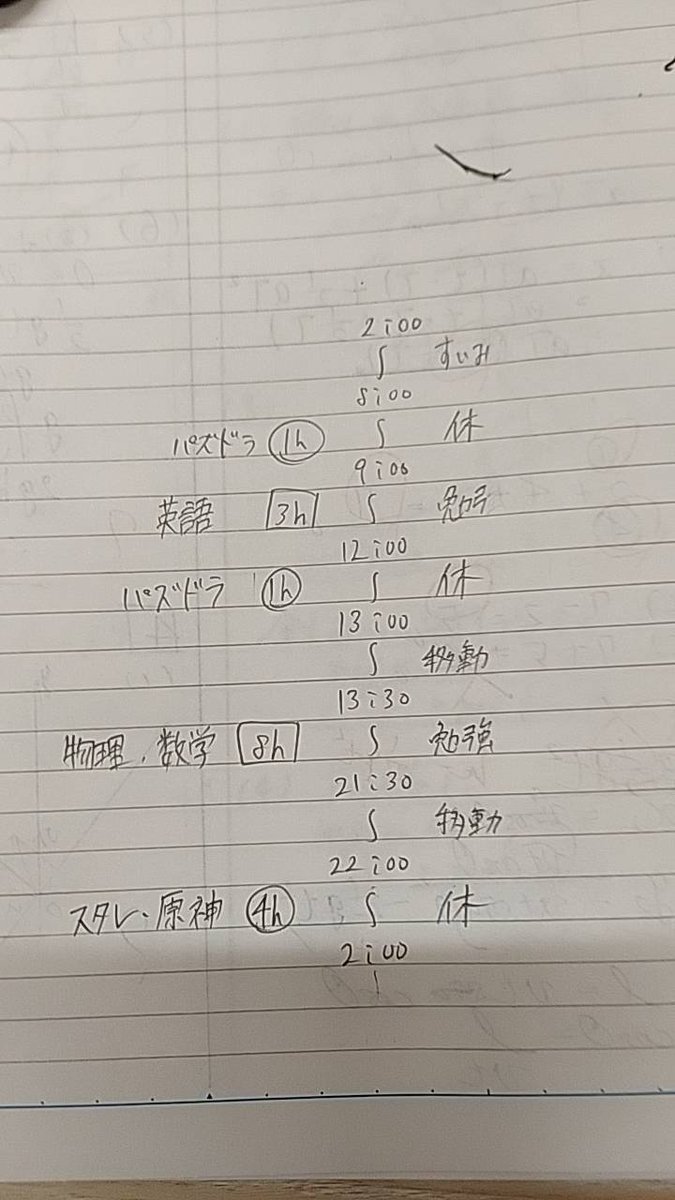 2:00
∫ すいみ
8:00
パズドラ 1h ∫ 休
9:00
英語 3h ∫ 勉強
12:00
パズドラ 1h ∫ 休
13:00
∫ 移動
13:30
物理・数学 8h ∫ 勉強
21:30
∫ 移動
22:00
スタレ・原神 4h ∫ 休
2:00